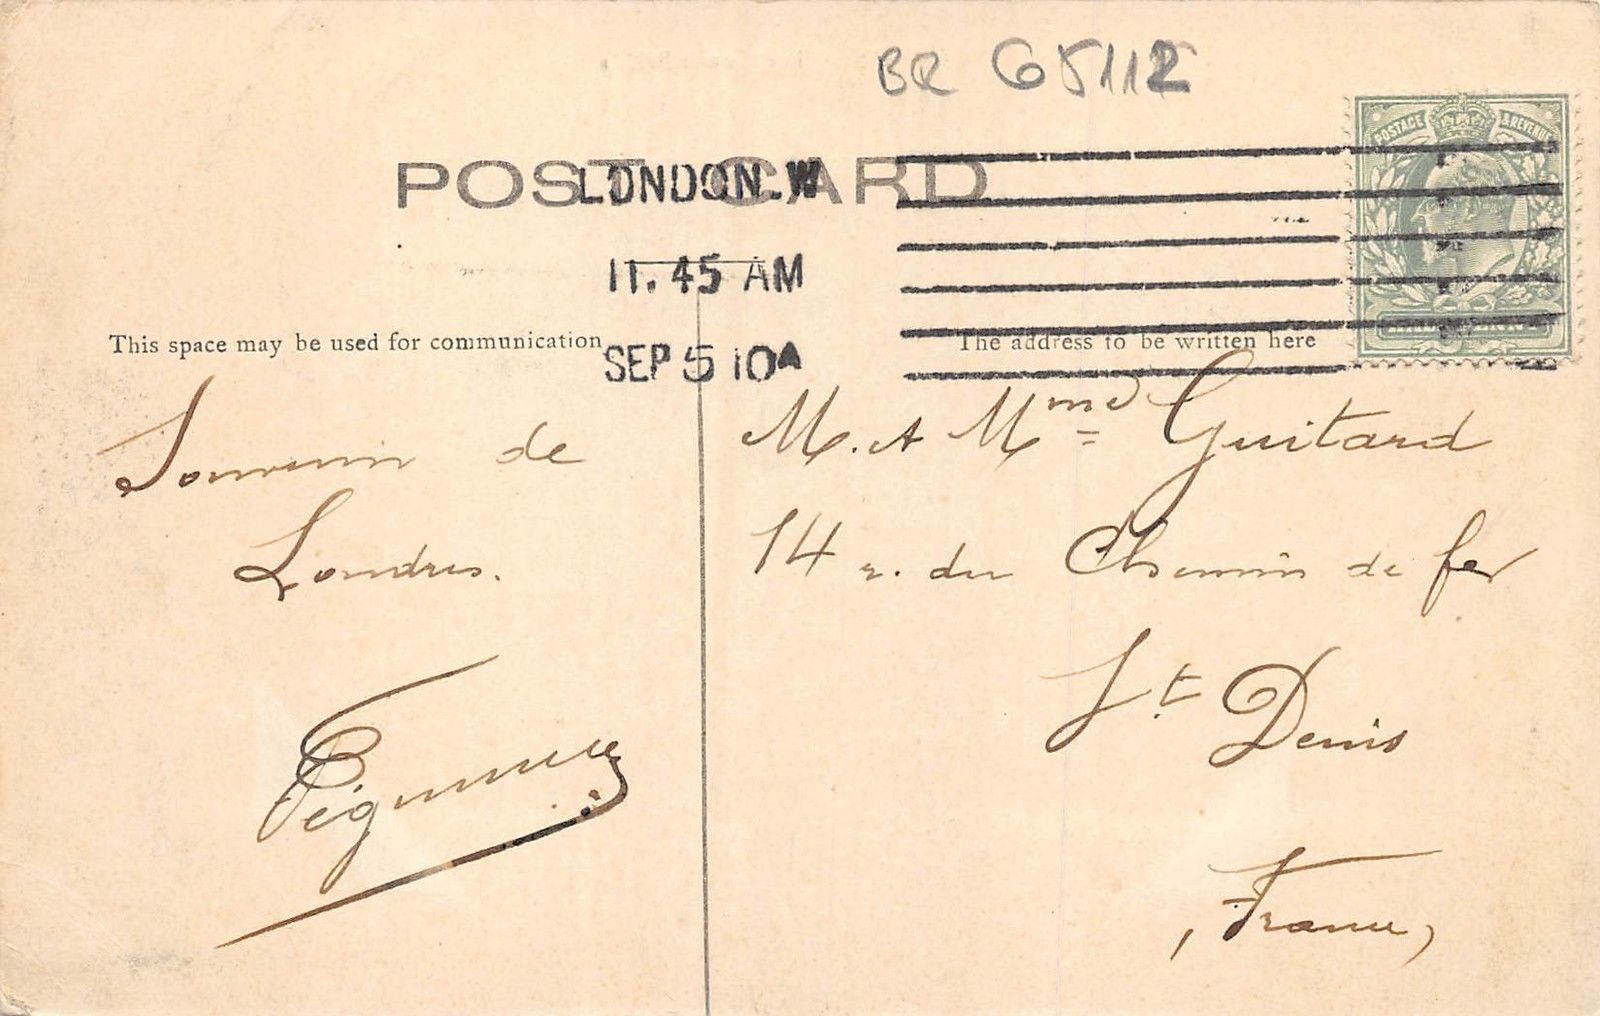 BR 65112
POSTAGE & REVENUE
POST CARD
LONDON. W
11. 45 AM
SEP 5 10A
This space may be used for communication
The address to be written here
Souvenir de
Londres.
M. et Mme Guitard
14 r. du Chemin de fer
St Denis
(France)